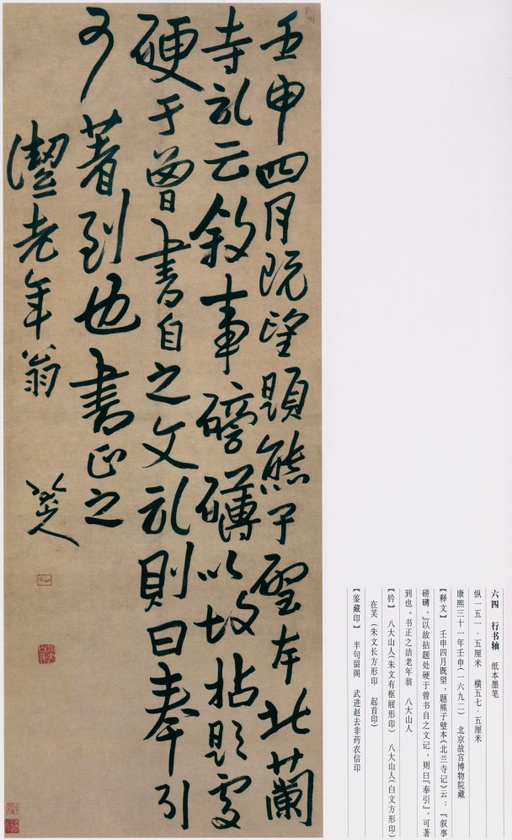 壬申四月既望題熊子璧本北蘭
寺記云敘事磅礴以故拈題處
硬于曾書自之文記則曰奉引
可著到也書正之
潔老年翁
八大山人
六四 行书轴 纸本墨笔
纵一五一·五厘米 横五七·五厘米
康熙三十一年壬申(一六九二) 北京故宫博物院藏
【释文】 壬申四月既望,题熊子璧本《北兰寺记》云:『叙事
磅礴,』以故拈题处硬于曾书自之文记,则曰『奉引』。可著
到也。书正之洁老年翁 八大山人
【钤】 八大山人(朱文有框屐形印) 八大山人(白文方形印)
在芙(朱文长方形印 起首印)
【鉴藏印】 半句留阁 武进赵去非药农信印